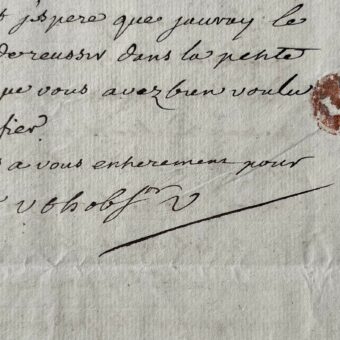 t j'espere que jauray le
dereussir dans la petite
que vous avez bien voulu
fier
s a vous entierement pour